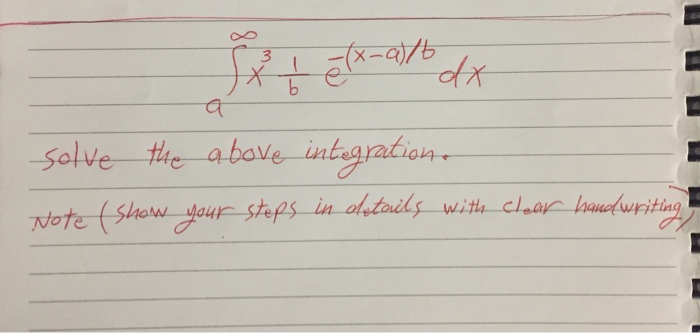 ∞∫a x³ 1/b e^-(x-a)/b dx
solve the above integration.
Note (show your steps in details with clear handwriting)